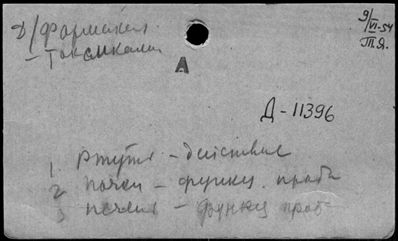 Д/фармакол
9/VI-54
– Токсикалог
Т.Я.
А
Д-11396
1 Ртуть – действие
2 почки – функц. проба
3 печень – функц проб